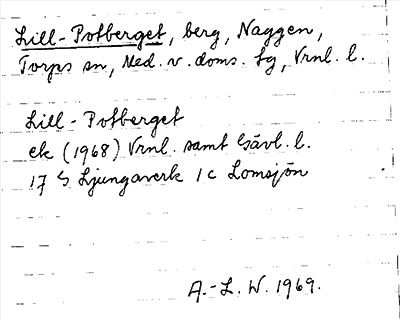 Lill-Potberget, berg, Naggen,
Torps sn, Med. v. doms. tg, Vrnl. l.
Lill-Potberget
ek (1968) Vrnl. samt Gävl. l.
17 G Ljungaverk 1 c Lomsjön
A.-L. W. 1969.